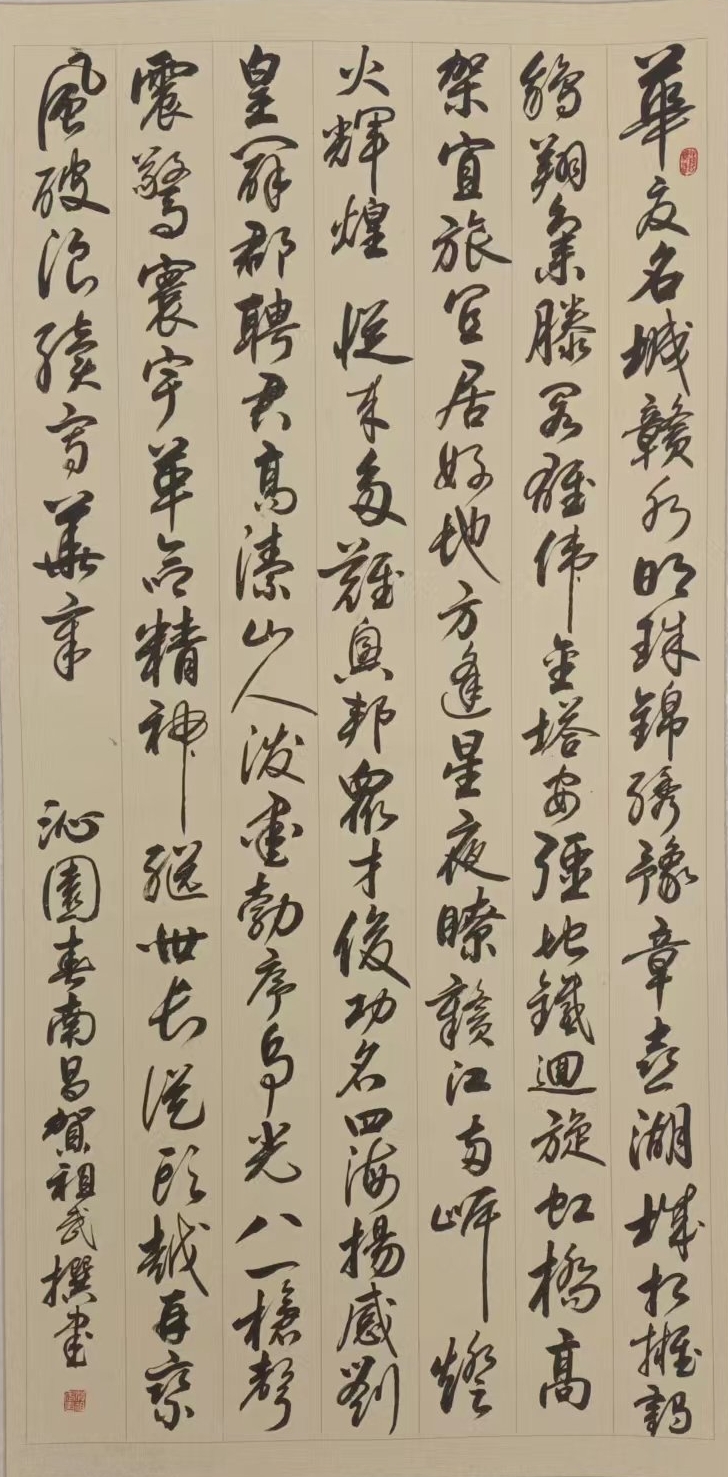 華夏名城贛水明珠錦繡豫章喜湖城相擁
翔集滕閣雄偉金塔安疆地鐵迴旋虹橋高
架宜旅宜居好地方逢星夜瞭贛江兩岸燈
火輝煌 從來多難興邦眾才俊功名四海揚感劉
皇郡聘君高潔山人潑畫勃序爭光八一槍聲
震驚寰宇革命精神繼世長從頭越再乘
風破浪續寫華章
沁園春南昌賀祖武撰書